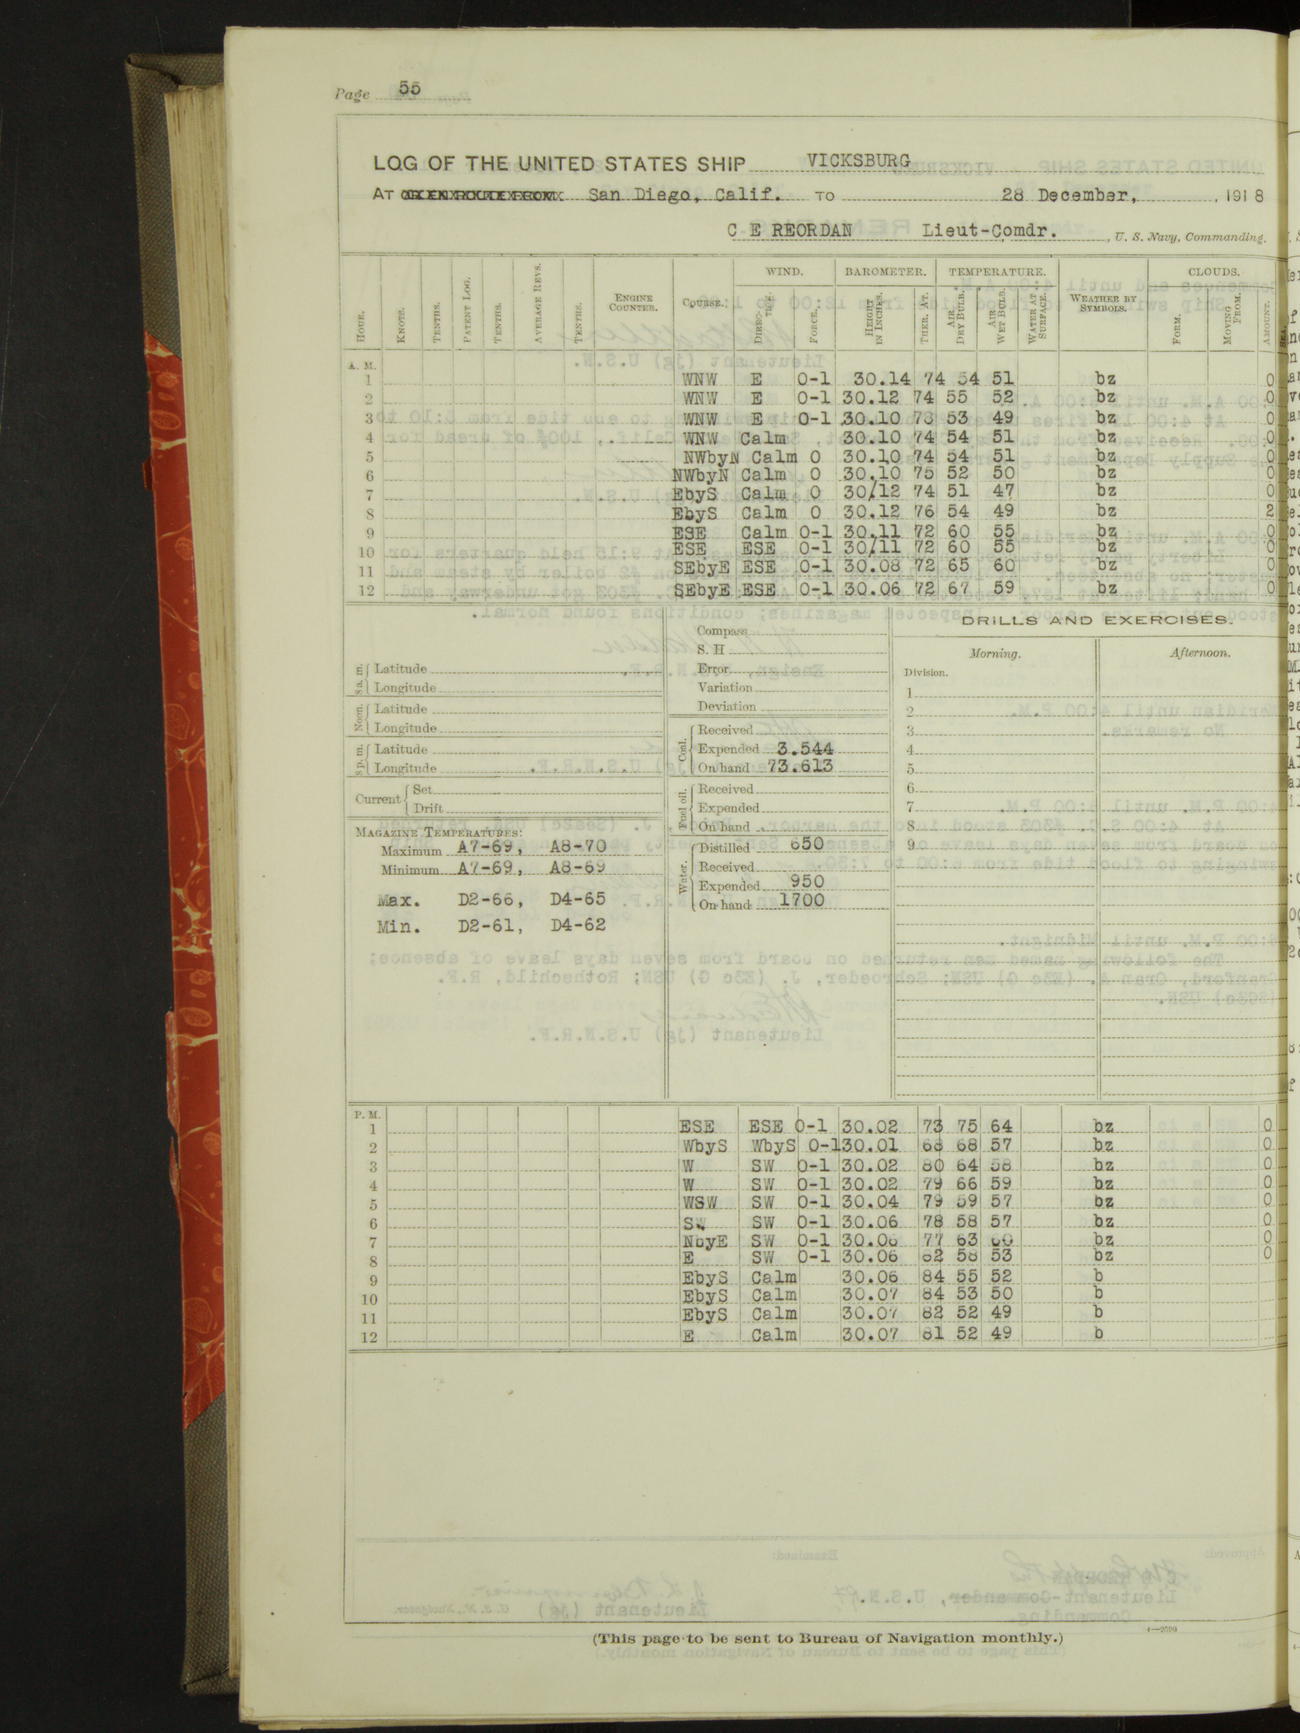 Page 55
LOG OF THE UNITED STATES SHIP VICKSBURG
AT San Diego, Calif. TO 28 December, , 1918
C E REORDAN Lieut-Comdr. , U. S. Navy, Commanding.
WIND. BAROMETER. TEMPERATURE. CLOUDS.
HOUR. KNOTS. TENTHS. PATENT LOG. TENTHS. AVERAGE REVS. TENTHS. ENGINE COUNTER. COURSE. DIREC-TION. FORCE. HEIGHT IN INCHES. THER. AT. AIR DRY BULB. AIR WET BULB. WATER AT SURFACE. WEATHER BY SYMBOLS. FORM. MOVING FROM. AMOUNT.
A. M.
1 WNW E 0-1 30.14 74 54 51 bz 0
2 WNW E 0-1 30.12 74 55 52 bz 0
3 WNW E 0-1 30.10 73 53 49 bz 0
4 WNW Calm 30.10 74 54 51 bz 0
5 NWbyN Calm 0 30.10 74 54 51 bz 0
6 NWbyN Calm 0 30.10 75 52 50 bz 0
7 EbyS Calm 0 30/12 74 51 47 bz 0
8 EbyS Calm 0 30.12 76 54 49 bz 2
9 ESE Calm 0-1 30.11 72 60 55 bz 0
10 ESE ESE 0-1 30/11 72 60 55 bz 0
11 SEbyE ESE 0-1 30.08 72 65 60 bz 0
12 SEbyE ESE 0-1 30.06 72 67 59 bz 0
8 a. m. Latitude
Longitude
Noon. Latitude
Longitude
8 p. m. Latitude
Longitude
Current Set
Drift
MAGAZINE TEMPERATURES:
Maximum A7-69, A8-70
Minimum A7-69, A8-69
Max. D2-66, D4-65
Min. D2-61, D4-62
Compass
S. H
Error
Variation
Deviation
Coal. Received
Expended 3.544
On hand 73.613
Fuel oil. Received
Expended
On hand
Water. Distilled 650
Received
Expended 950
On hand 1700
DRILLS AND EXERCISES.
Morning. Afternoon.
Division.
1
2
3
4
5
6
7
8
9
P. M.
1 ESE ESE 0-1 30.02 73 75 64 bz 0
2 WbyS WbyS 0-1 30.01 68 68 57 bz 0
3 W SW 0-1 30.02 80 64 58 bz 0
4 W SW 0-1 30.02 79 66 59 bz 0
5 WSW SW 0-1 30.04 79 59 57 bz 0
6 SW SW 0-1 30.06 78 58 57 bz 0
7 NbyE SW 0-1 30.06 77 63 60 bz 0
8 E SW 0-1 30.06 82 58 53 bz 0
9 EbyS Calm 30.06 84 55 52 b
10 EbyS Calm 30.07 84 53 50 b
11 EbyS Calm 30.07 82 52 49 b
12 E Calm 30.07 81 52 49 b
(This page to be sent to Bureau of Navigation monthly.)